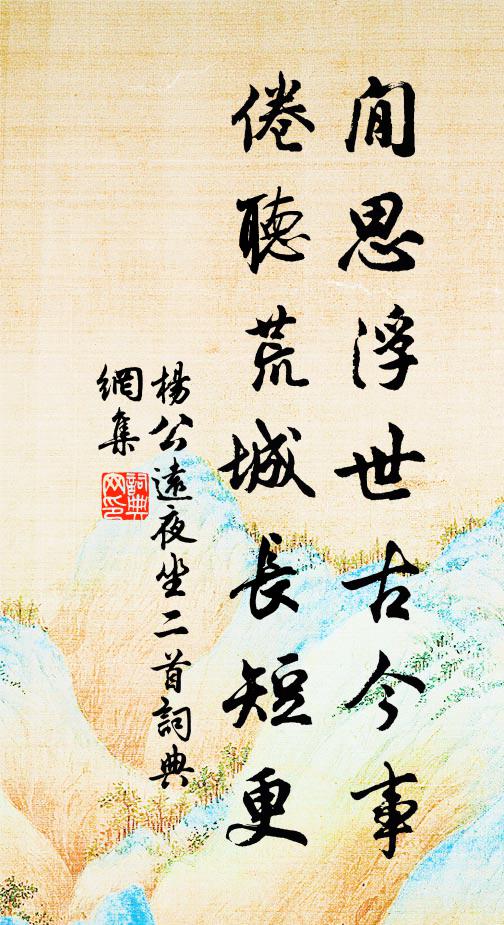 閒思浮世古今事
倦聽荒城長短更
楊公遠夜坐二首詞典
網集
詞典
网印